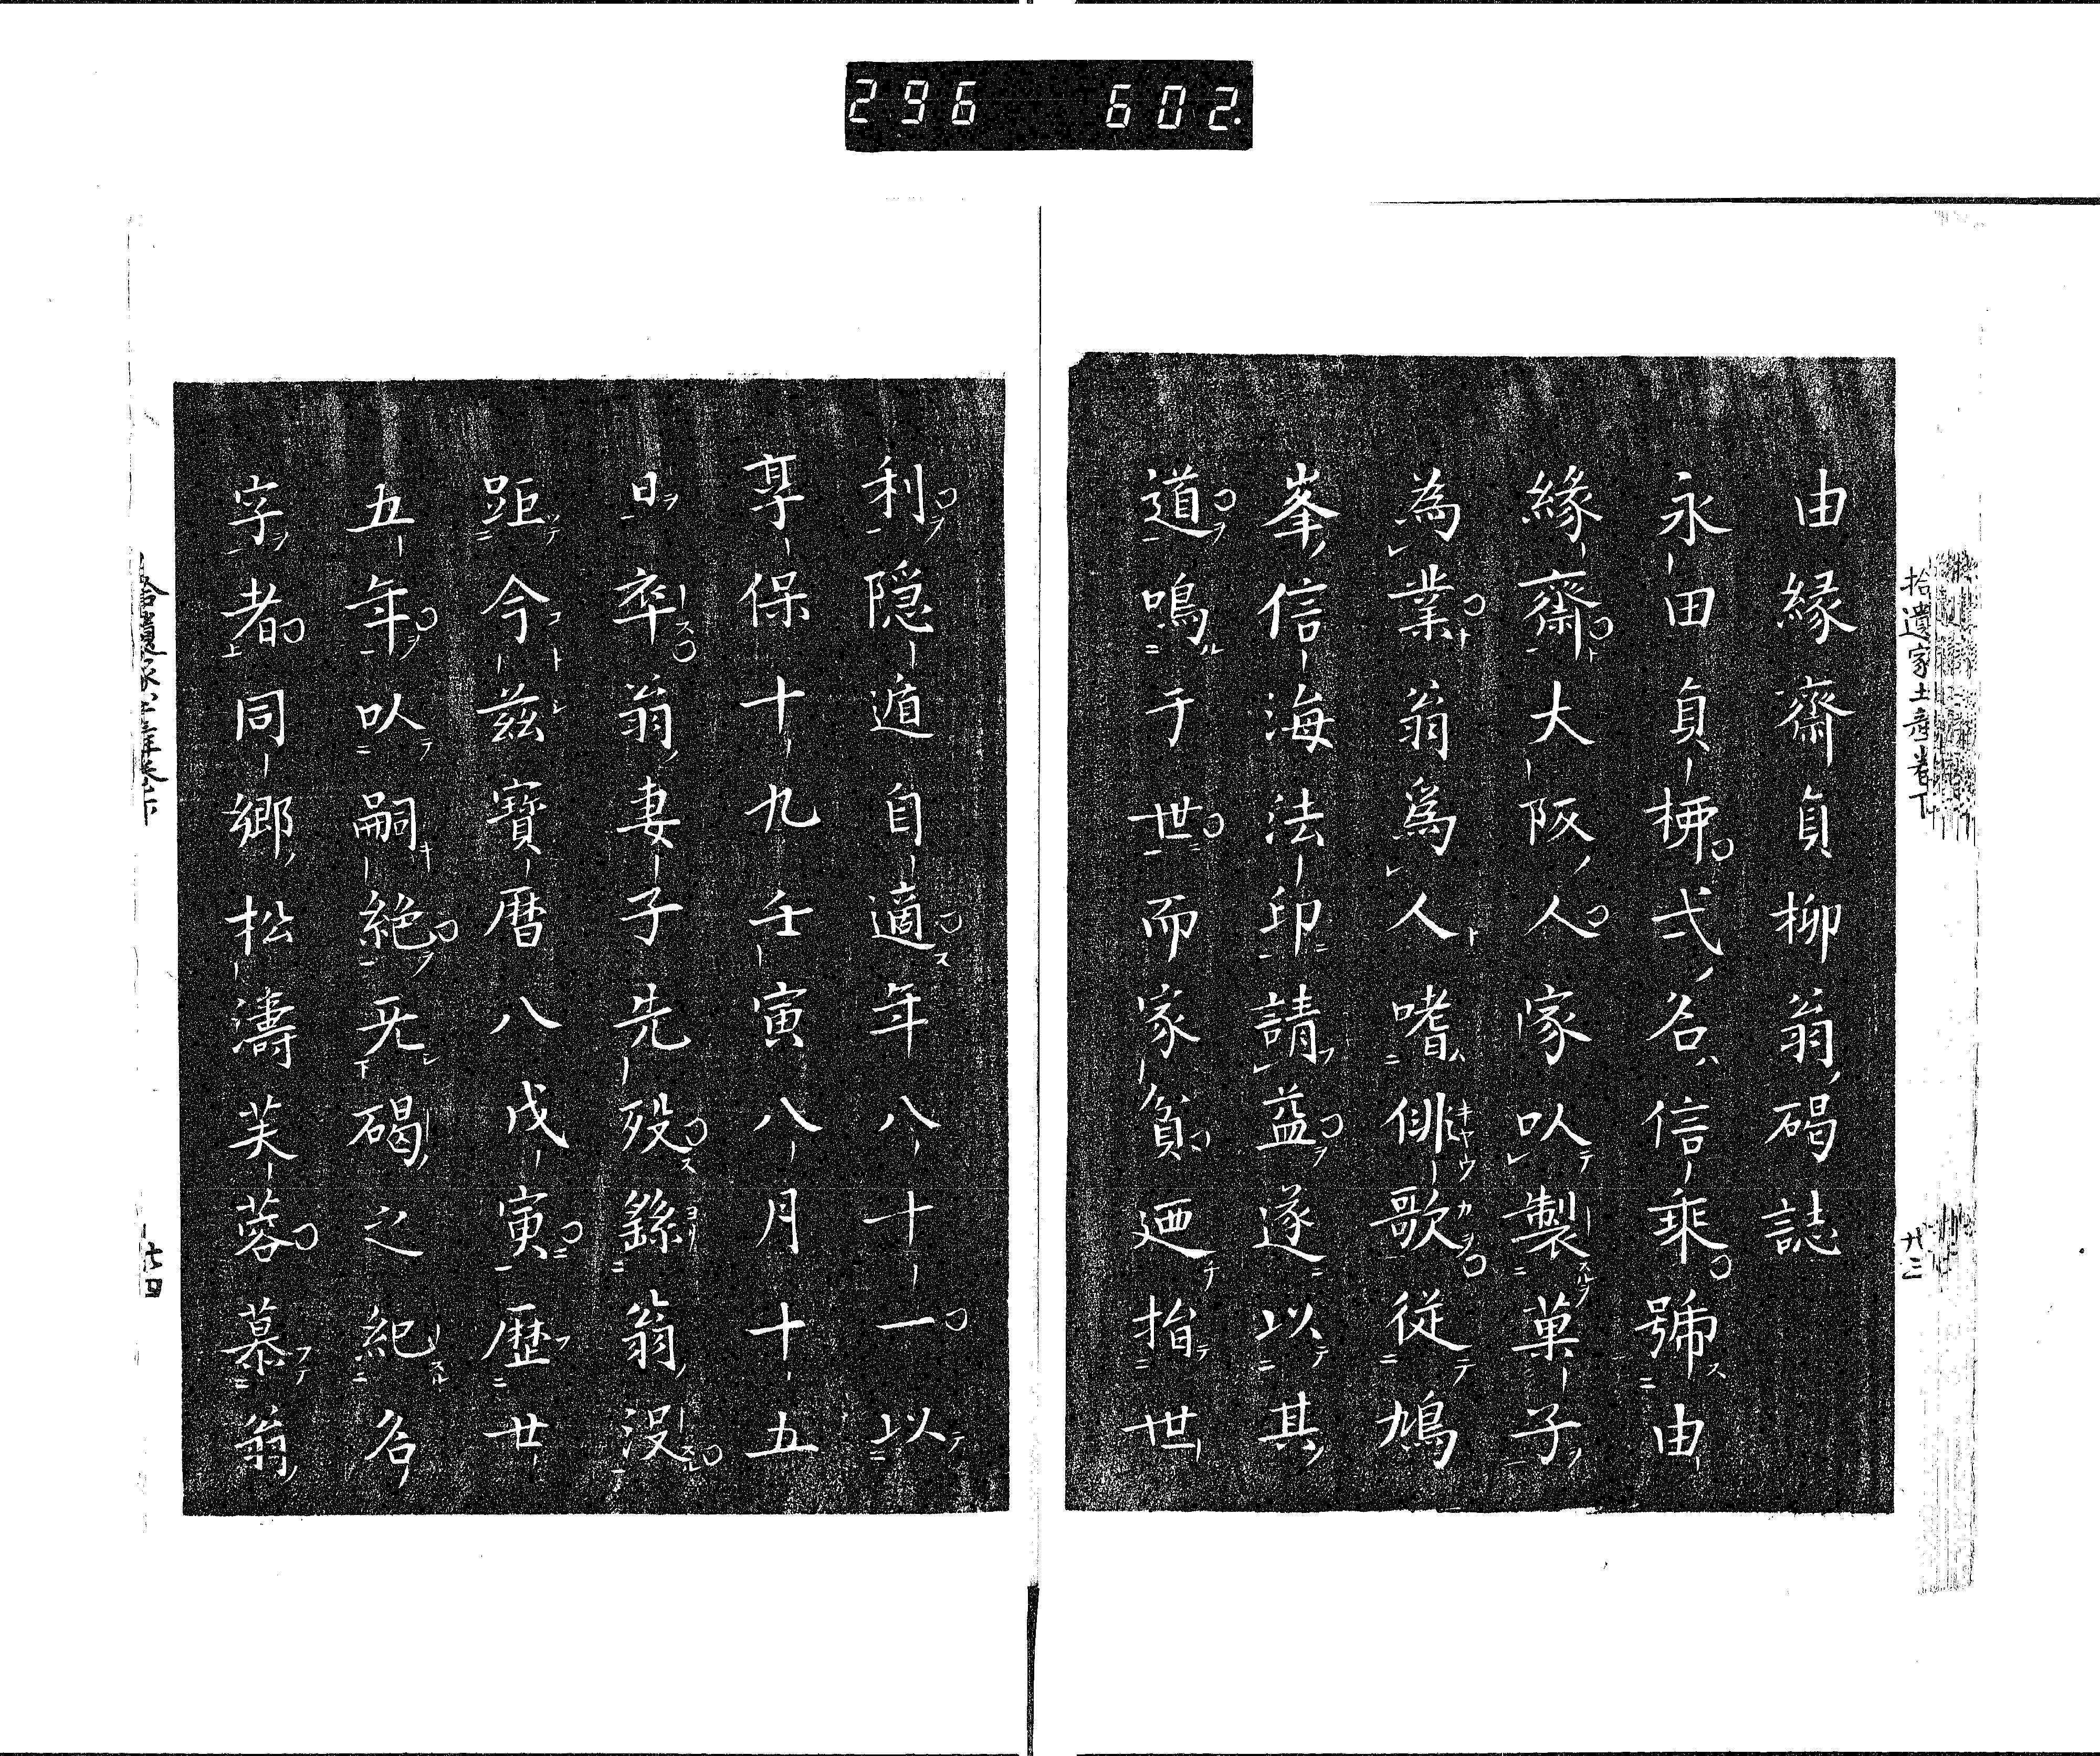 296 602.
拾遺家土産巻下
廿三
由縁齋貞柳翁碣誌
永田貞柳弌名信乗號由
縁齋大阪人家以製菓子
為業翁爲人嗜俳歌從鳩
峯信海法印請益遂以其
道鳴于世而家貧廼指世
利隠遁自適年八十一以
享保十九壬寅八月十五
日卒翁妻子先歿繇翁没
距今茲寶暦八戊寅歴廿
五年以嗣絶无碣之紀名
字者同郷松濤芙蓉慕翁
廿四